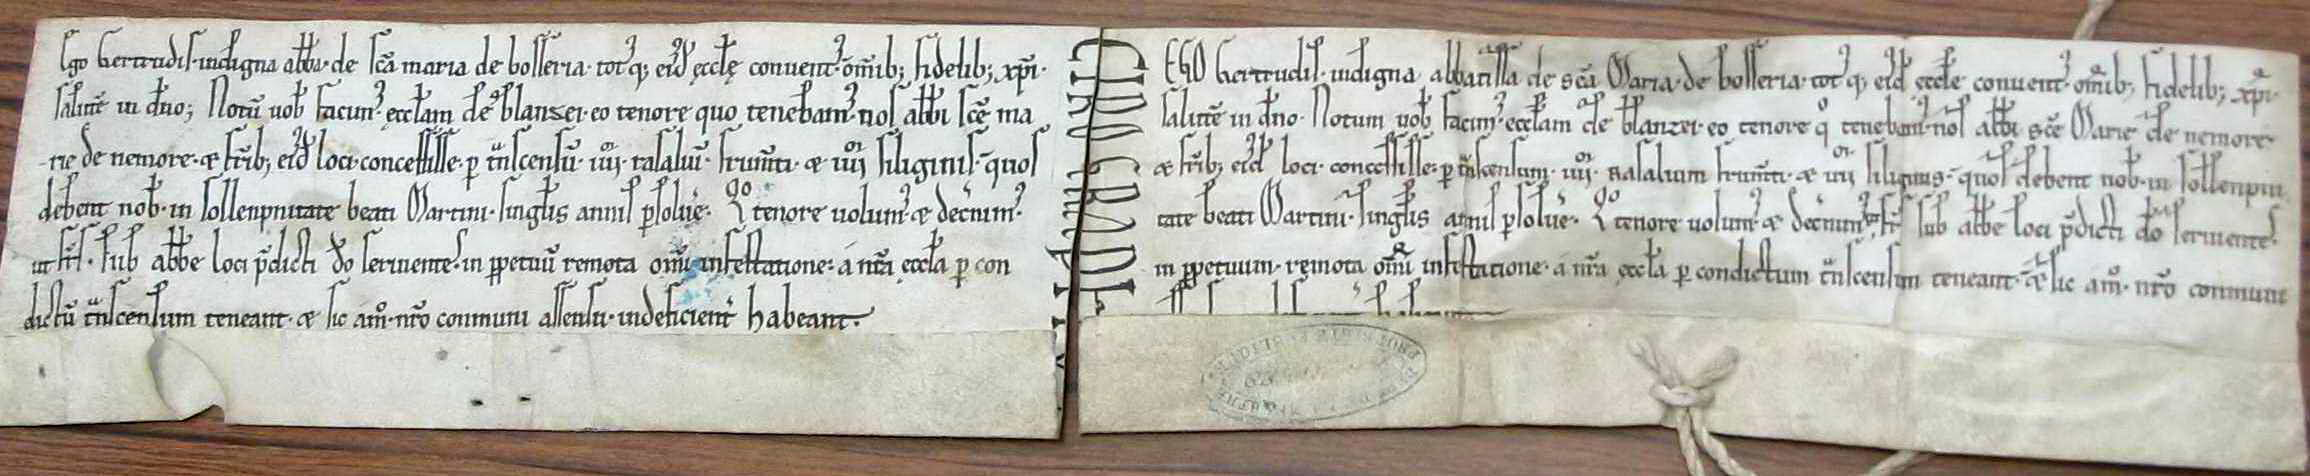 Ego Gertrudis· indigna abb̄a· de sc̄a maria de bosseria· totꝰ q; eiꝰd ęccl̄ę conuentꝰ· om̄ib; fidelib; xp̄i·
salutē in dn̄o; Notū uob̄ facimꝰ ęccl̄am de blanzei· eo tenore quo tenebamꝰ nos abb̄i sc̄ę ma
rie de nemore· ⁊ fr̄ib; eiꝰd loci· concessisse· ꝑ t̄nscensū· iiij· rasaliū· frum̄ti· ⁊ iiij siliginis· quos
debent nob̄· in sollenpnitate beati Martini· singl̄is annis ꝑsoluē· tenore uolumꝰ ⁊ decnimꝰ·
ut fr̄s· sub abb̄e loci p̄dicti dō seruientes· in ꝑpetuū remota om̄i infestatione· a nr̄a ęccl̄a ꝑ con
dictū t̄nscensum teneant· ⁊ sic nr̄o communi assensu· indeficient̄ habeant·
CIROGRAPHE
EGO Gertrudis· indigna abbatissa de sc̄a Maria· de bosseria· totꝰ q; eiꝰd ęccl̄e conuentꝰ· om̄ib; fidelib; xp̄i·
salutē in dn̄o· Notum uob̄ facimꝰ ęccl̄am de blanzei· eo tenore q° tenebamꝰ nos abb̄i sc̄ę Marie de nemore·
⁊ fr̄ib; eiꝰd loci· concessisse· ꝑ t̄nscensum· iiij· rasalium frum̄ti· ⁊ iiij siliginis· quos debent nob̄· in sollenpni
tate beati Martini· singl̄is annis ꝑsoluē· tenore uolumꝰ ⁊ decnimꝰ ut fr̄s sub abb̄e loci p̄dicti dō seruientes·
in ꝑpetuum· remota om̄i infestatione· a nr̄a ęccl̄a ꝑ condictum t̄nscensum teneant· ⁊ sic nr̄o communi